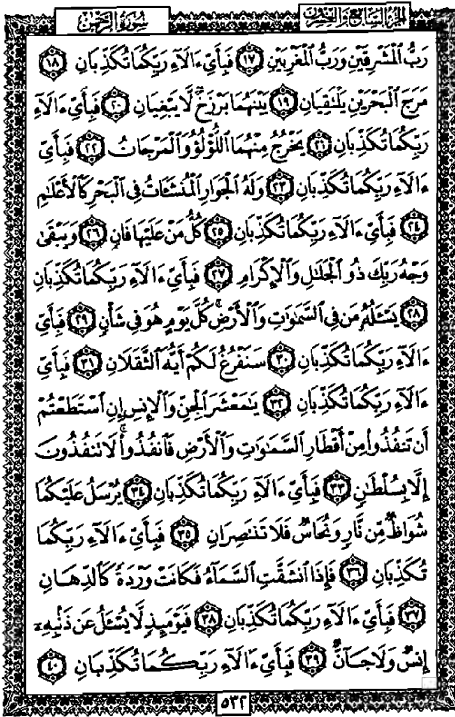 سورة الرحمن
الجزء السابع والعشرون
رَبُّ الْمَشْرِقَيْنِ وَرَبُّ الْمَغْرِبَيْنِ ١٧ فَبِأَيِّ ءَالَآءِ رَبِّكُمَا تُكَذِّبَانِ ١٨
مَرَجَ الْبَحْرَيْنِ يَلْتَقِيَانِ ١٩ بَيْنَهُمَا بَرْزَخٌ لَّا يَبْغِيَانِ ٢٠ فَبِأَيِّ ءَالَآءِ
رَبِّكُمَا تُكَذِّبَانِ ٢١ يَخْرُجُ مِنْهُمَا اللُّؤْلُؤُ وَالْمَرْجَانُ ٢٢ فَبِأَيِّ
ءَالَآءِ رَبِّكُمَا تُكَذِّبَانِ ٢٣ وَلَهُ الْجَوَارِ الْمُنشَـَٔاتُ فِي الْبَحْرِ كَالْأَعْلَٰمِ
٢٤ فَبِأَيِّ ءَالَآءِ رَبِّكُمَا تُكَذِّبَانِ ٢٥ كُلُّ مَنْ عَلَيْهَا فَانٍ ٢٦ وَيَبْقَىٰ
وَجْهُ رَبِّكَ ذُو الْجَلَٰلِ وَالْإِكْرَامِ ٢٧ فَبِأَيِّ ءَالَآءِ رَبِّكُمَا تُكَذِّبَانِ
٢٨ يَسْـَٔلُهُ مَن فِي السَّمَٰوَٰتِ وَالْأَرْضِ ۚ كُلَّ يَوْمٍ هُوَ فِي شَأْنٍ ٢٩ فَبِأَيِّ
ءَالَآءِ رَبِّكُمَا تُكَذِّبَانِ ٣٠ سَنَفْرُغُ لَكُمْ أَيُّهَ الثَّقَلَانِ ٣١ فَبِأَيِّ
ءَالَآءِ رَبِّكُمَا تُكَذِّبَانِ ٣٢ يَٰمَعْشَرَ الْجِنِّ وَالْإِنسِ إِنِ اسْتَطَعْتُمْ
أَن تَنفُذُوا مِنْ أَقْطَارِ السَّمَٰوَٰتِ وَالْأَرْضِ فَانفُذُوا ۚ لَا تَنفُذُونَ
إِلَّا بِسُلْطَٰنٍ ٣٣ فَبِأَيِّ ءَالَآءِ رَبِّكُمَا تُكَذِّبَانِ ٣٤ يُرْسَلُ عَلَيْكُمَا
شُوَاظٌ مِّن نَّارٍ وَنُحَاسٌ فَلَا تَنتَصِرَانِ ٣٥ فَبِأَيِّ ءَالَآءِ رَبِّكُمَا
تُكَذِّبَانِ ٣٦ فَإِذَا انشَقَّتِ السَّمَآءُ فَكَانَتْ وَرْدَةً كَالدِّهَانِ
٣٧ فَبِأَيِّ ءَالَآءِ رَبِّكُمَا تُكَذِّبَانِ ٣٨ فَيَوْمَئِذٍ لَّا يُسْـَٔلُ عَن ذَنبِهِۦٓ
إِنسٌ وَلَا جَآنٌّ ٣٩ فَبِأَيِّ ءَالَآءِ رَبِّكُمَا تُكَذِّبَانِ ٤٠
٥٣٢